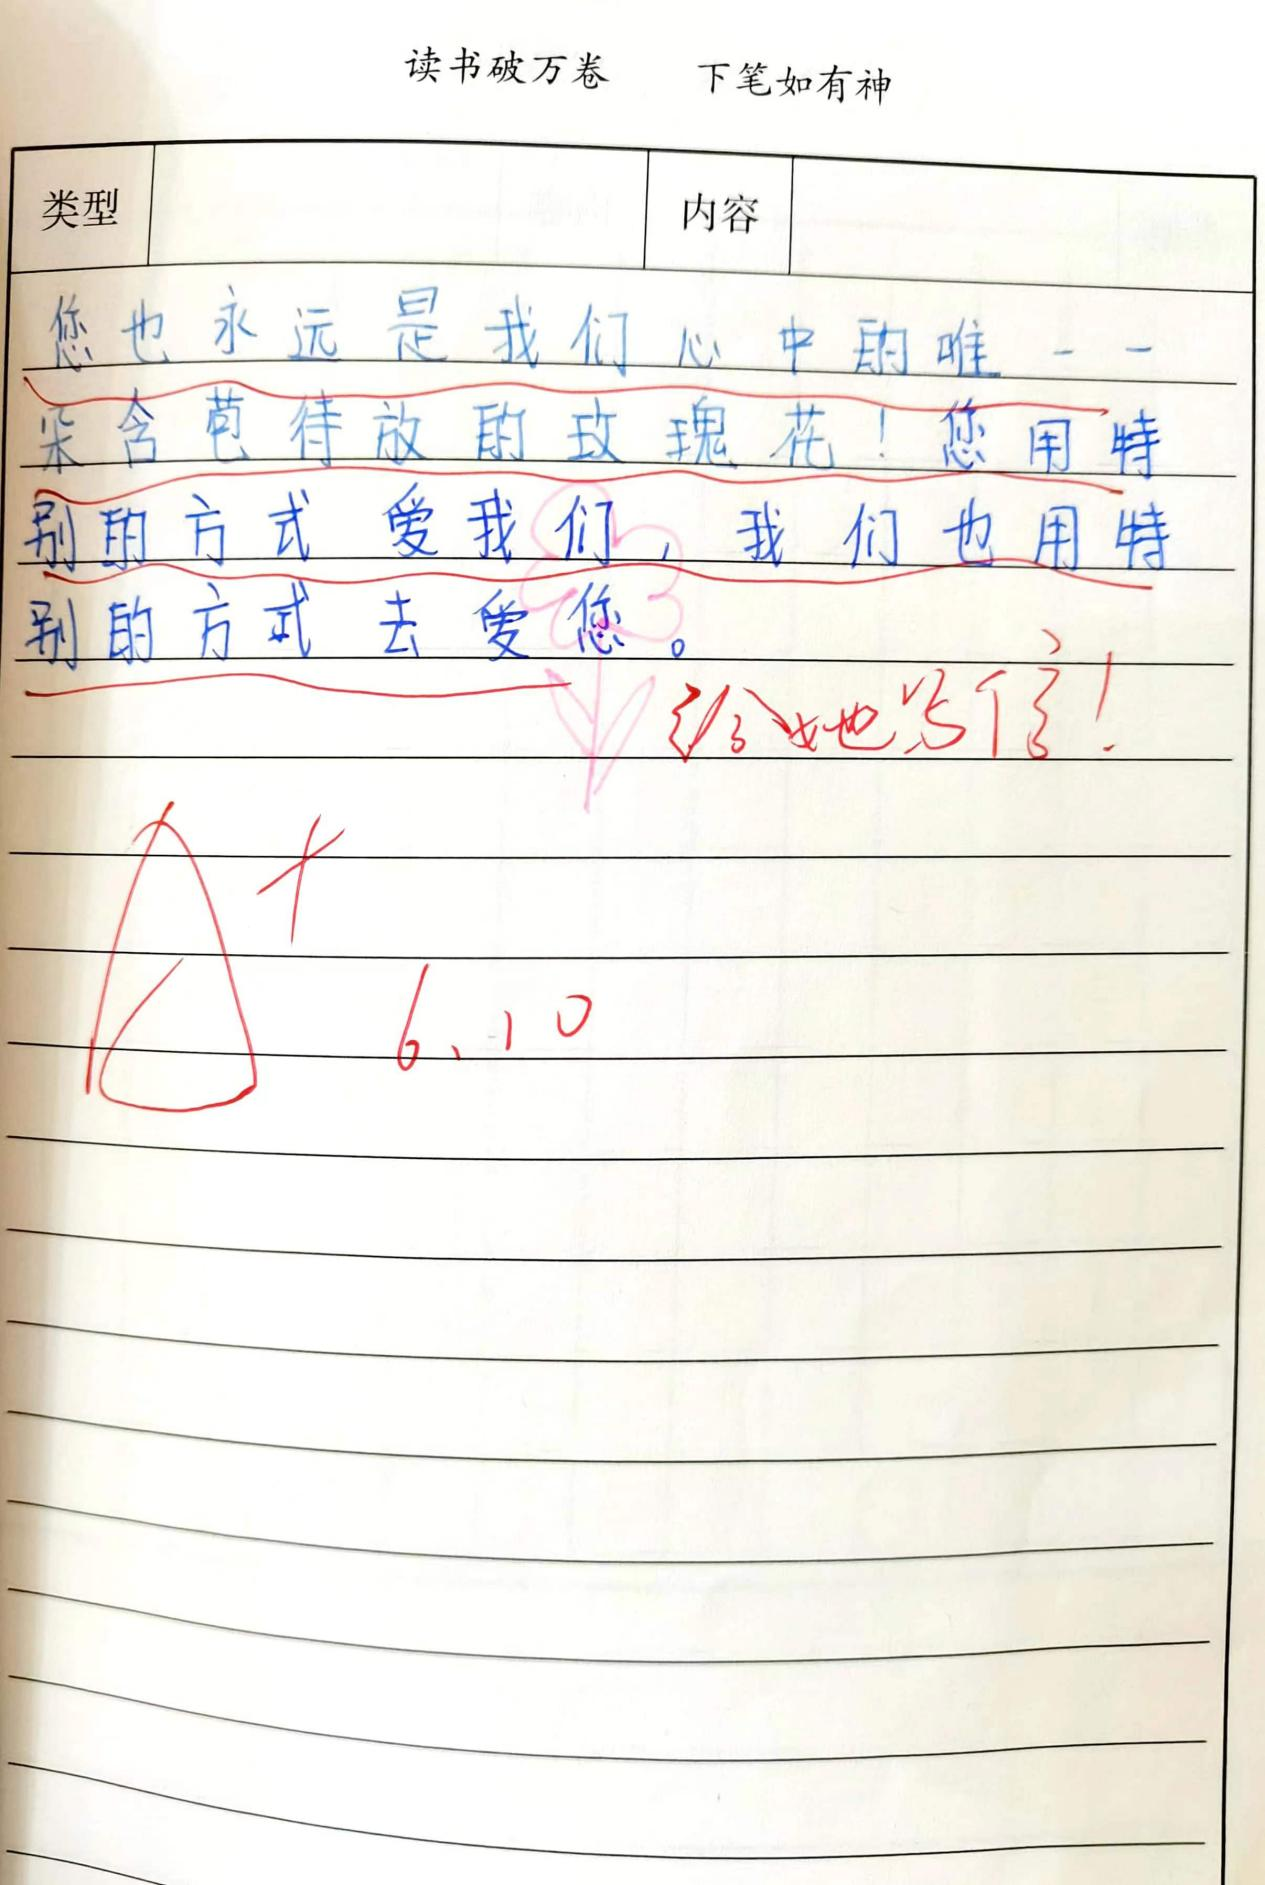 读书破万卷 下笔如有神
类型 内容
您也永远是我们心中的唯一一
朵含苞待放的玫瑰花！您用特
别的方式爱我们，我们也用特
别的方式去爱您。
给她写信！
A+
6.10